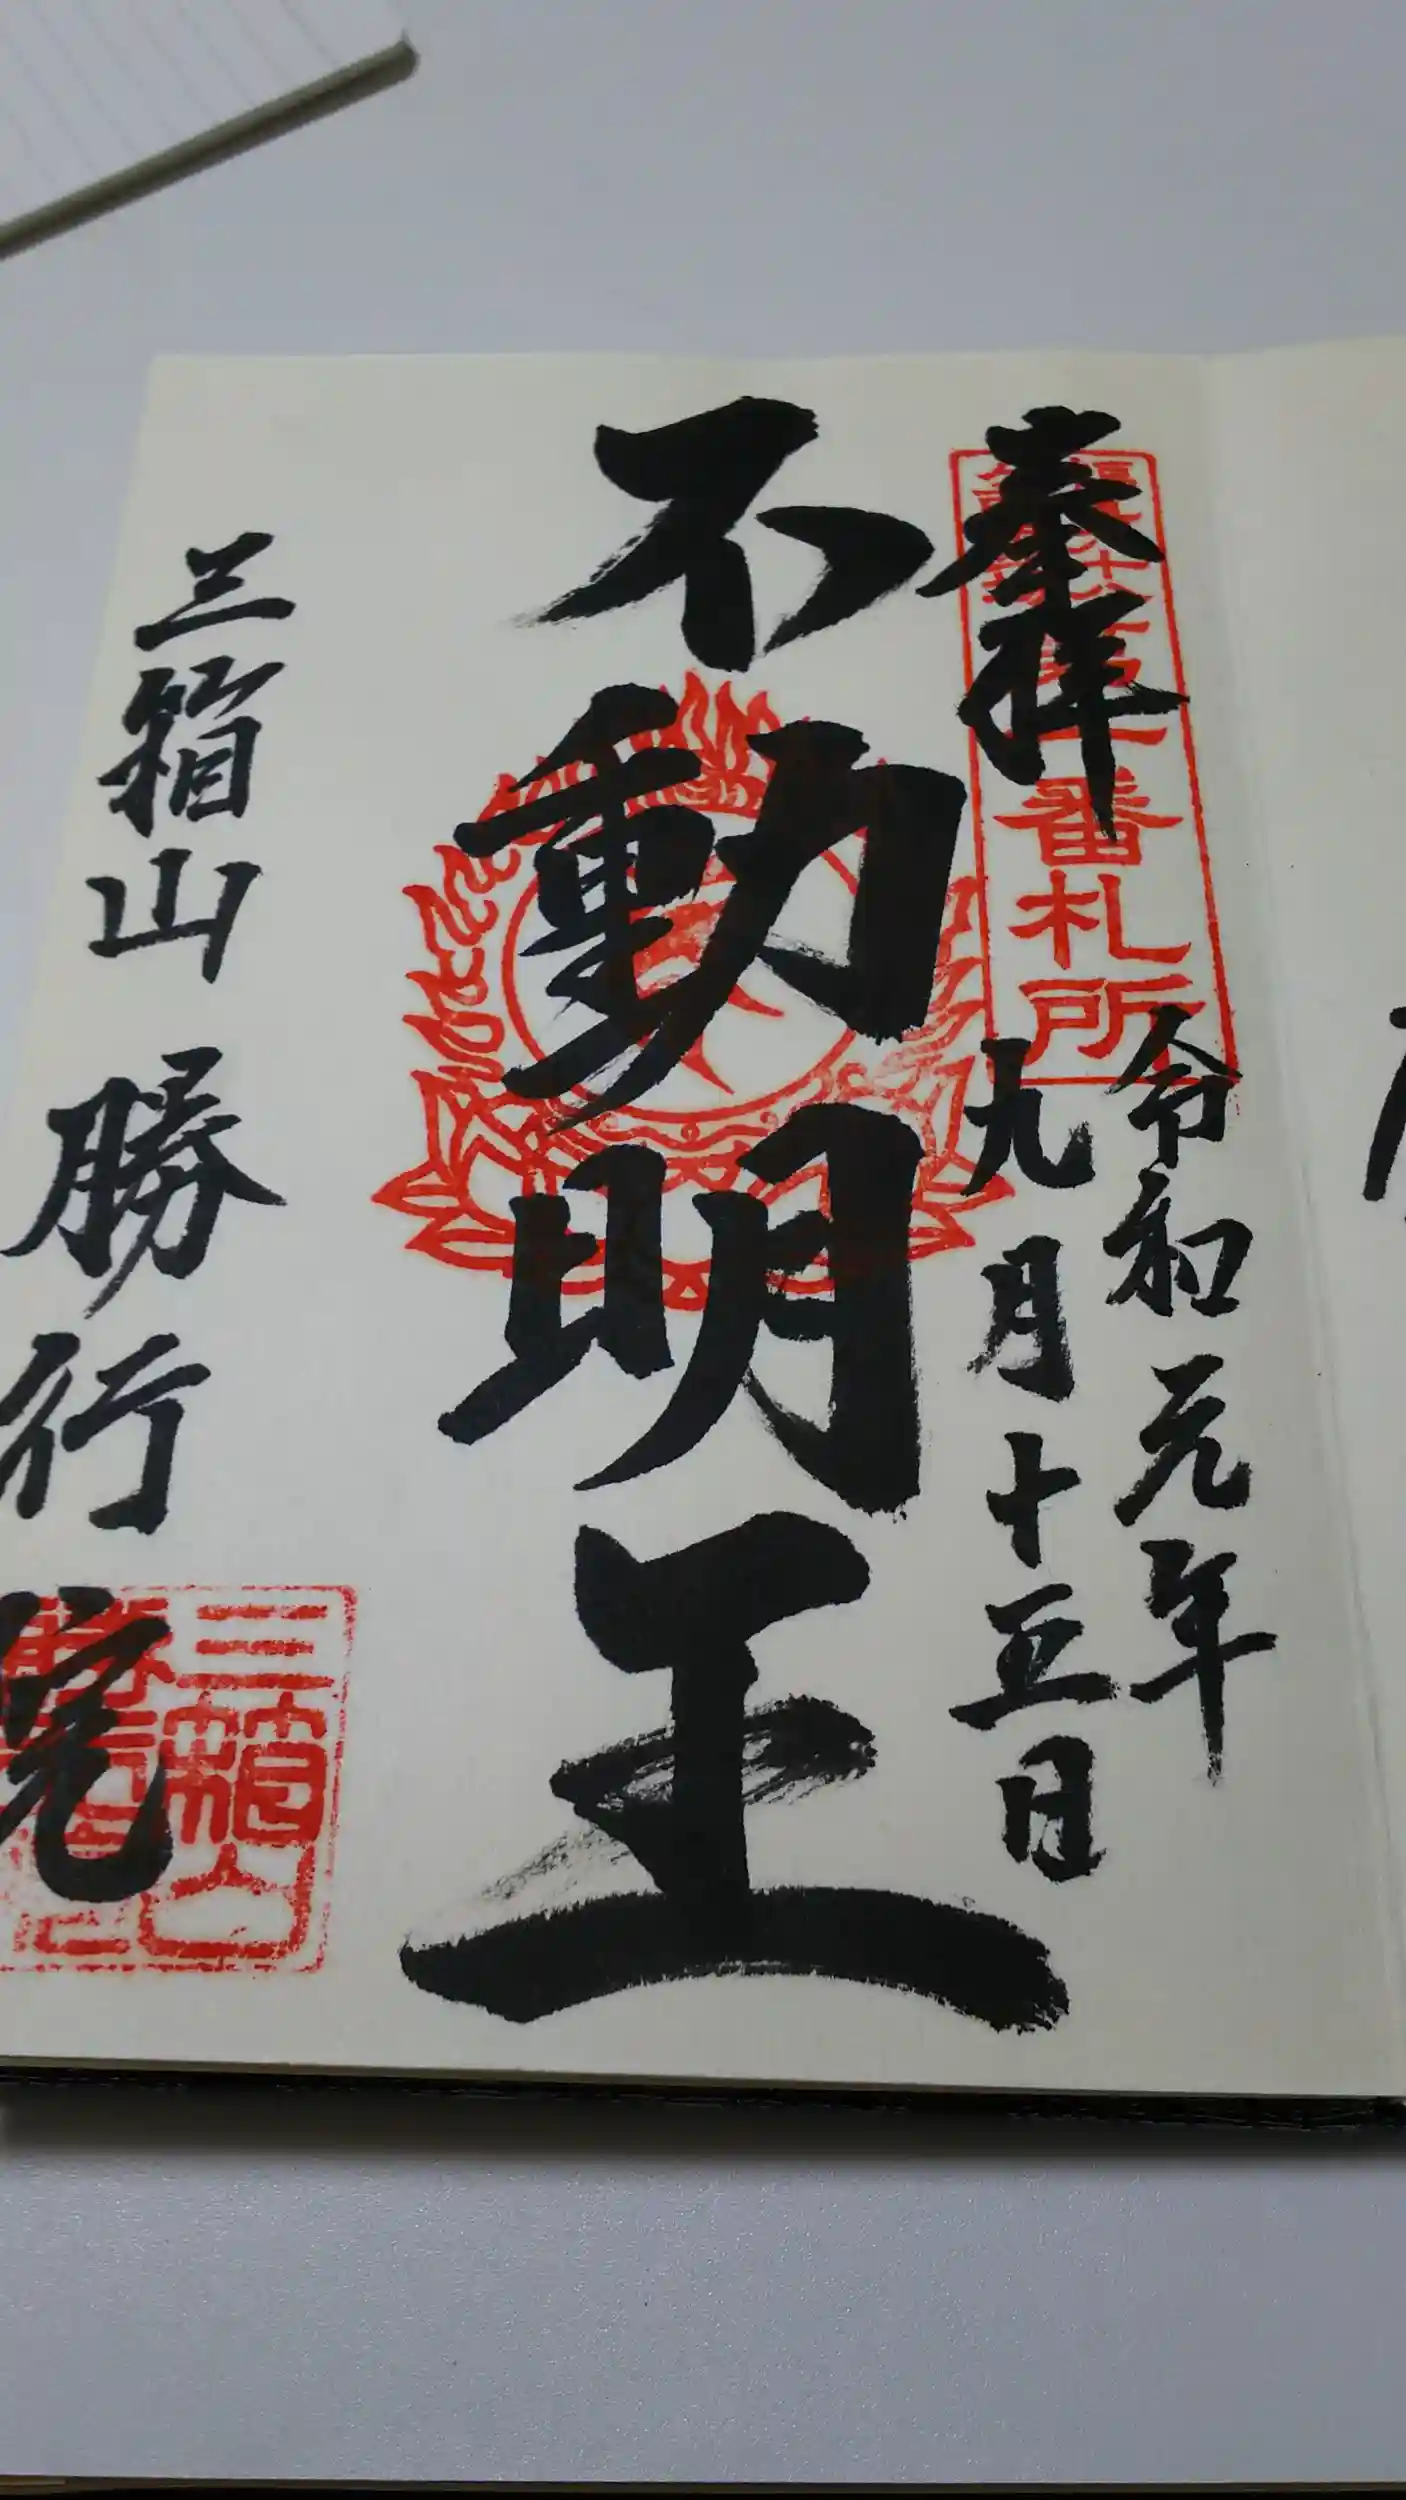 奉拝
令和元年
九月十五日
番札所
不動明王
三箱山 勝行院
三箱山